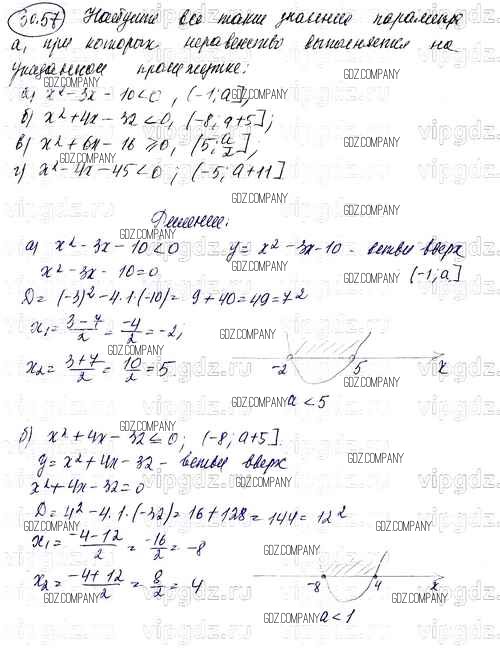 30.57 Найдите все такие значения параметра
а, при которых неравенство выполняется на
указанном промежутке:
а) x² - 3x - 10 < 0, (-1; a];
б) x² + 4x - 32 < 0, (-8, a+5];
в) x² + 6x - 16 ≥ 0, (5; a/2];
г) x² - 4x - 45 < 0; (-5; a+11]
Решение:
а) x² - 3x - 10 < 0 y = x² - 3x - 10 - ветви вверх
x² - 3x - 10 = 0 (-1; a]
D = (-3)² - 4·1·(-10) = 9 + 40 = 49 = 7²
x₁ = (3-7)/2 = -4/2 = -2;
x₂ = (3+7)/2 = 10/2 = 5.
-2 5 x
a < 5
б) x² + 4x - 32 ≤ 0; (-8; a+5].
y = x² + 4x - 32 - ветви вверх
x² + 4x - 32 = 0
D = 4² - 4·1·(-32) = 16 + 128 = 144 = 12²
x₁ = (-4-12)/2 = -16/2 = -8
x₂ = (-4+12)/2 = 8/2 = 4
-8 4 x
a < 1
GDZ.COMPANY
vipgdz.ru